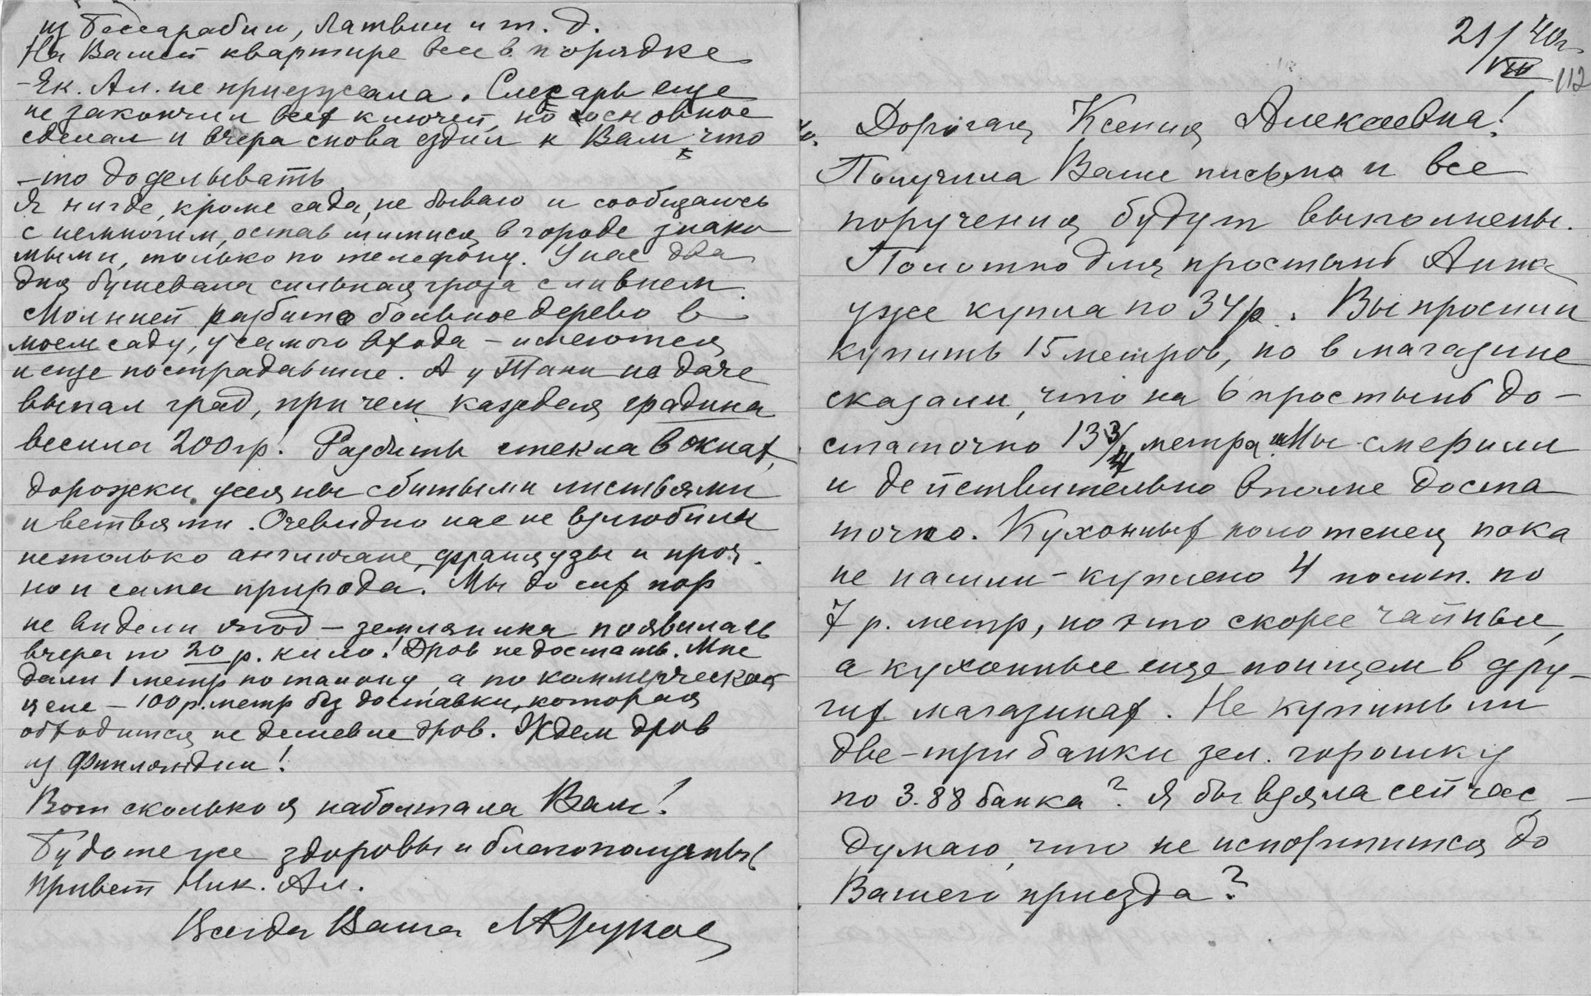 21/VII 40г.
112
Дорогая Ксения Алексеевна!
Получила Ваше письмо и все
поручения будут выполнены.
Полотно для простынь Анна
уже купила по 34 р. Вы просили
купить 15 метров, но в магазине
сказали, что на 6 простынь до-
статочно 13 3/4 метра. Мы смерили
и действительно вполне доста
точно. Кухонных полотенец пока
не нашли - куплено 4 полот. по
7 р. метр, но это скорее чайные,
а кухонные еще поищем в дру-
гих магазинах. Не купить ли
две-три банки зел. горошку
по 3.88 банка? Я бы взяла сейчас -
думаю, что не испортится до
Вашего приезда?
из Бессарабии, Латвии и т. д.
На Вашей квартире все в порядке
- Ек. Ал. не приезжала. Слесарь еще
не закончил всех ключей, но основное
сделал и вчера снова ездил к Вам что
-то доделывать
Я нигде, кроме сада, не бываю и сообщаюсь
с немногими, оставшимися в городе знако
мыми, только по телефону. У нас два
дня бушевала сильная гроза с ливнем.
Молнией разбито большое дерево в
моем саду, у самого входа - имеются
и еще пострадавшие. А у Тани на даче
выпал град, при чем каждая градина
весила 200 гр! Разбиты стекла в окнах,
дорожки усеяны сбитыми листьями
и ветвями. Очевидно нас не взлюбили
не только англичане, французы и проч.
но и сама природа. Мы до сих пор
не видели ягод - земляника появилась
вчера по 20 р. кило! Дров не достать. Мне
дали 1 метр по талону, а по коммерческой
цене - 100 р. метр без доставки, которая
обходится не дешевле дров. Ждем дров
из Финляндии!
Вот сколько я наболтала Вам!
Будьте же здоровы и благополучны
Привет Ник. Ал.
Всегда Ваша